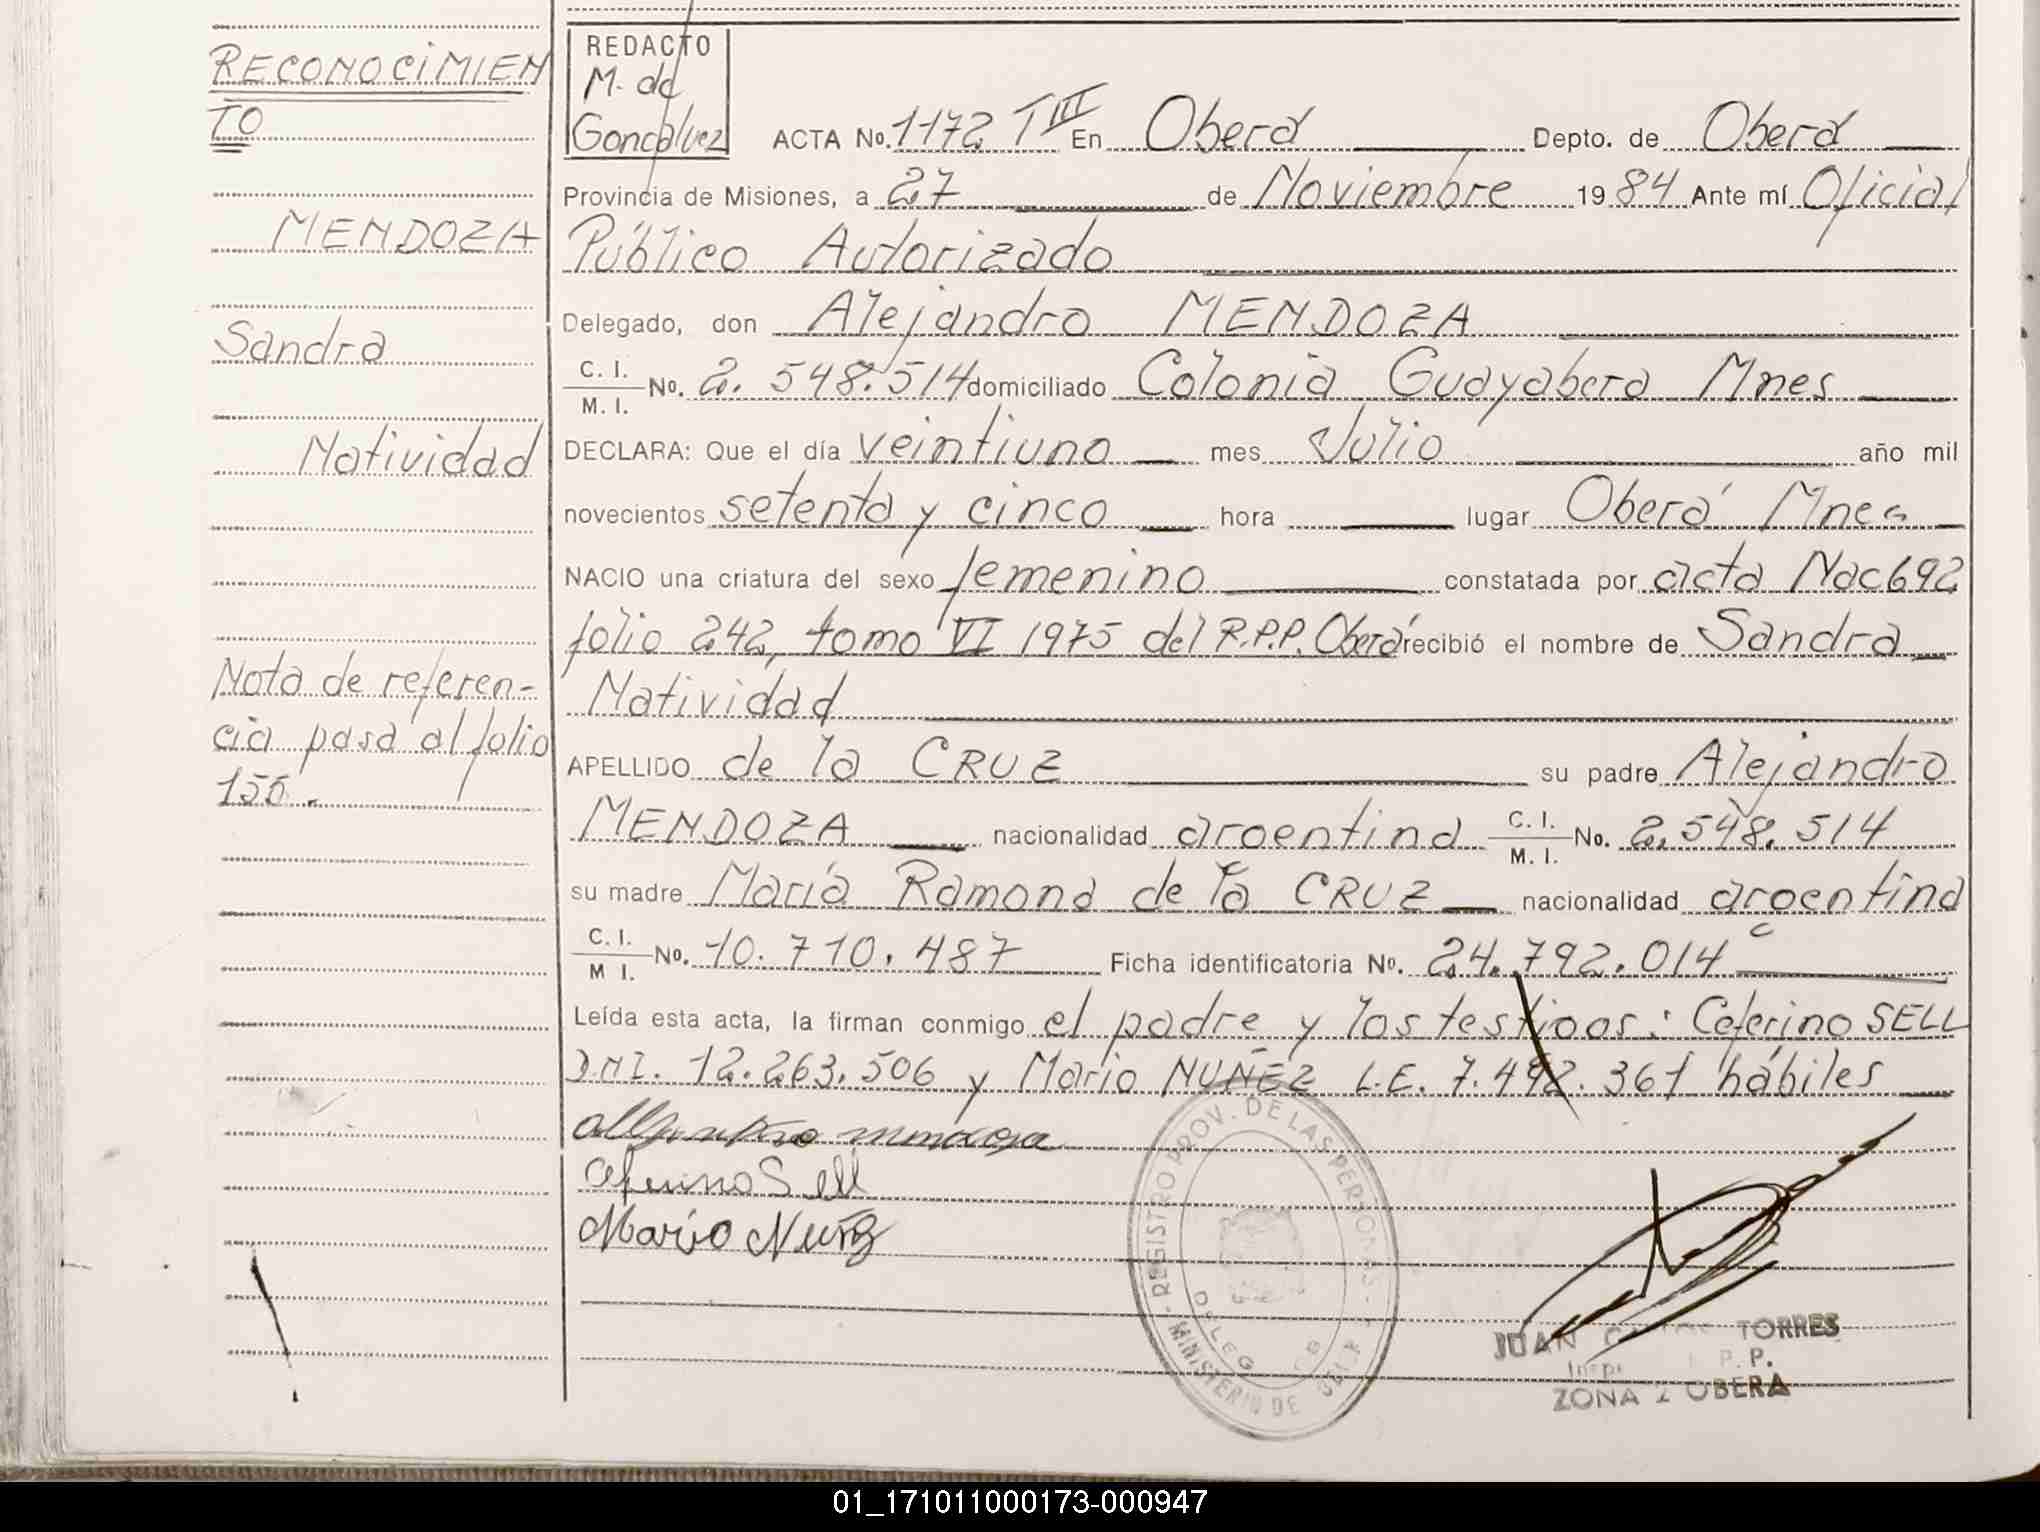 RECONOCIMIEN
TO
MENDOZA
Sandra
Natividad
Nota de referen-
cia pasa al folio
155.
REDACTO
M. de
Goncalvez
ACTA No. 1172 T III En Oberá Depto. de Oberá
Provincia de Misiones, a 27 de Noviembre 1984 Ante mí Oficial
Público Autorizado
Delegado, don Alejandro MENDOZA
C. I. / M. I. No. 2.548.514 domiciliado Colonia Guayabera Mnes
DECLARA: Que el día veintiuno mes Julio año mil
novecientos setenta y cinco hora lugar Oberá Mnes
NACIO una criatura del sexo femenino constatada por acta Nac 692
folio 242, tomo VI 1975 del R.P.P. Oberá recibió el nombre de Sandra
Natividad
APELLIDO de la CRUZ su padre Alejandro
MENDOZA nacionalidad argentina C. I. / M. I. No. 2.548.514
su madre María Ramona de la CRUZ nacionalidad argentina
C. I. / M I. No. 10.710.487 Ficha identificatoria No. 24.792.014
Leída esta acta, la firman conmigo el padre y los testigos: Ceferino SELL
D.N.I. 12.263.506 y Mario NUÑEZ L.E. 7.492.361 hábiles
Ceferino Sell
Mario Nuñez
REGISTRO PROV. DE LAS PERSONAS
MINISTERIO DE
JUAN TORRES
P. P.
ZONA 2 OBERA
01_171011000173-000947